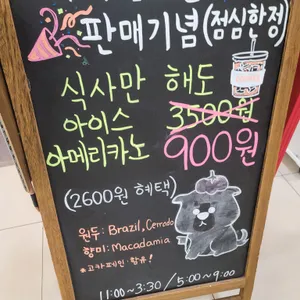 판매기념 (점심한정)
식사만 해도
아이스 3500원
아메리카노 900원
(2600원 혜택)
원두: Brazil, Cerrado
향미: Macadamia
*고카페인 함유!
11:00~3:30 / 5:00~9:00